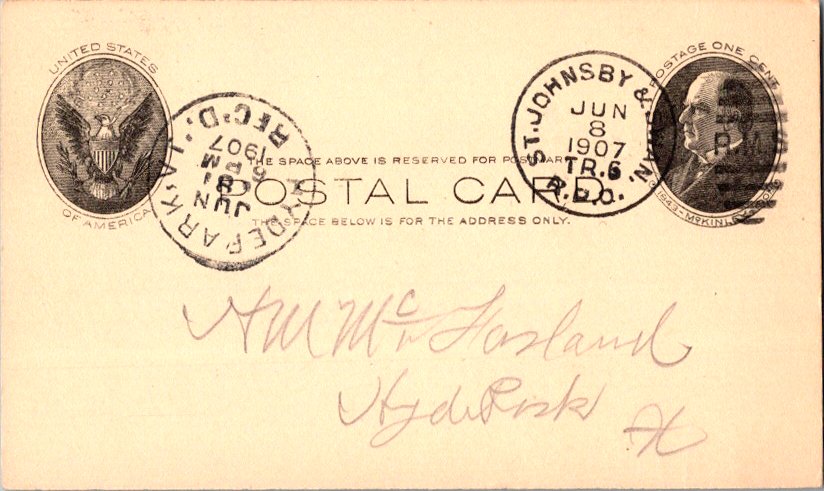 UNITED STATES
OF AMERICA
HYDEPARK,
REC'D.
JUN
8
6 PM
1907
ST. JOHNSBY &
JUN
8
1907
TR. 6
R.P.O.
POSTAGE ONE CENT
1843 - McKINLEY
THE SPACE ABOVE IS RESERVED FOR POSTMARK
POSTAL CARD
THE SPACE BELOW IS FOR THE ADDRESS ONLY.
H M McFarland
Hyde Park